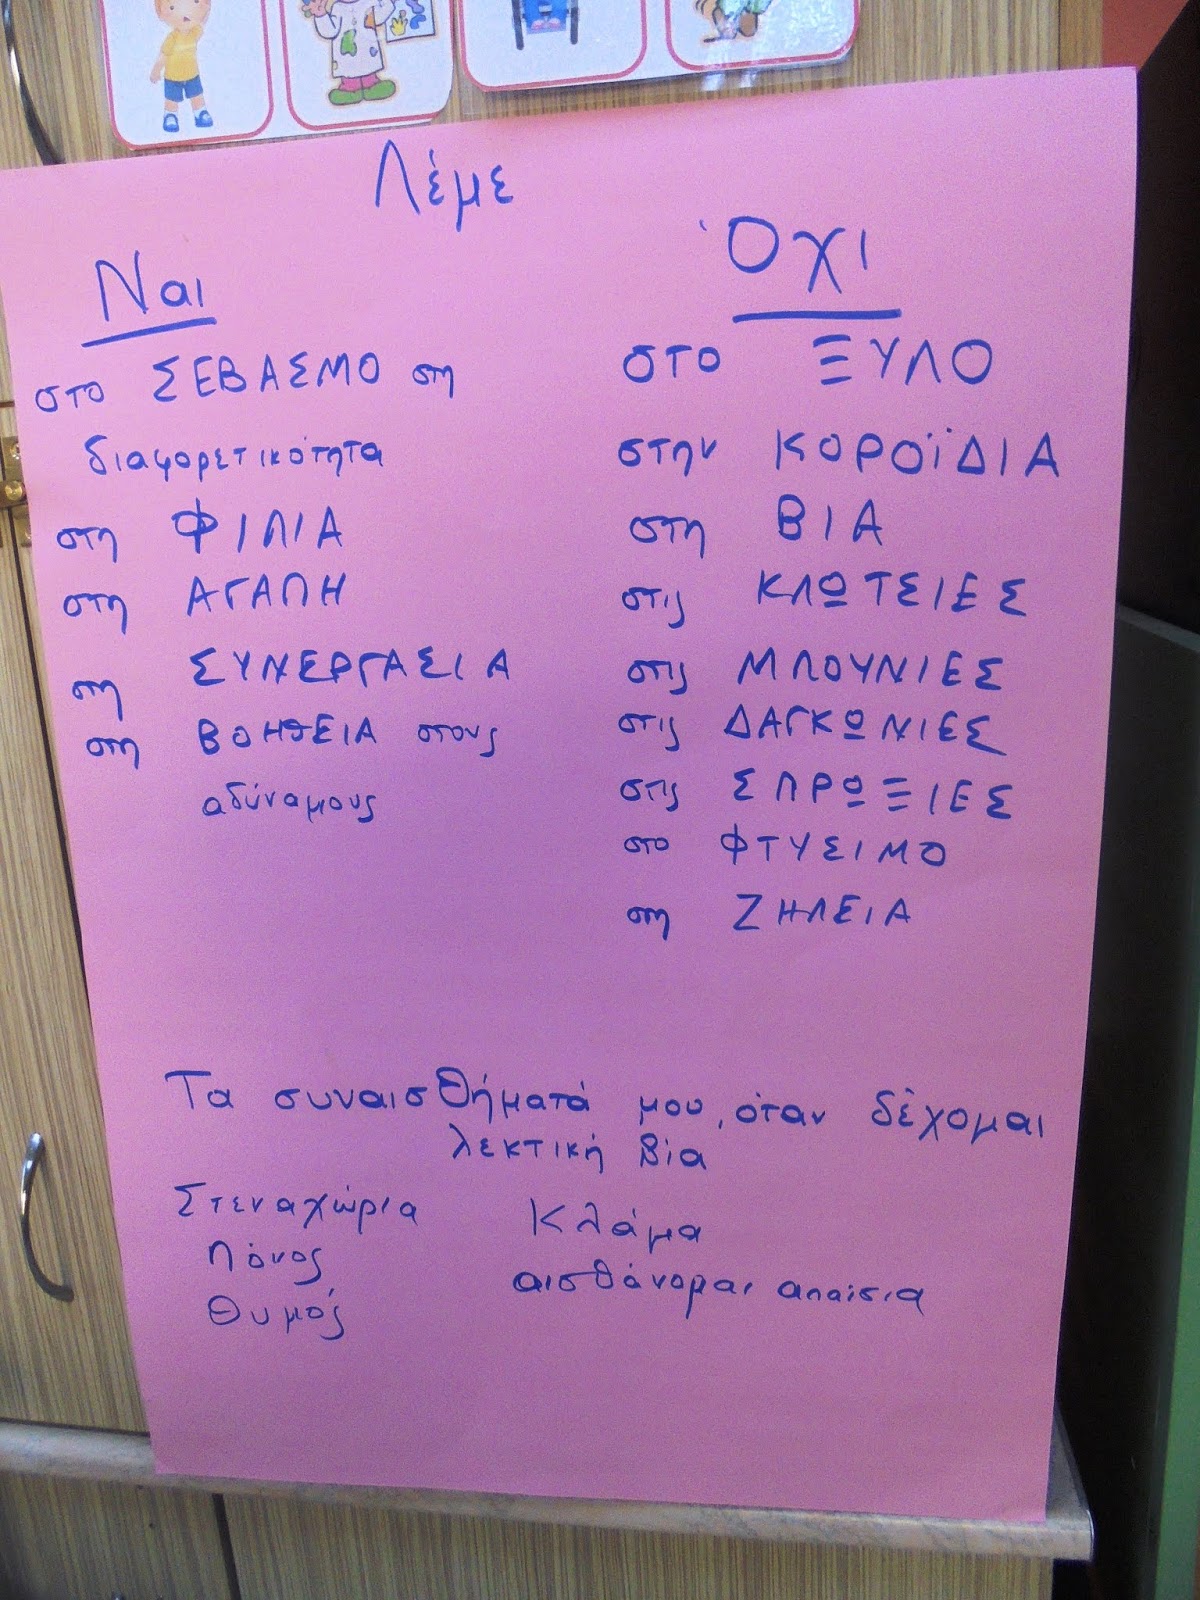 Λέμε
Ναι
στο ΣΕΒΑΣΜΟ στη
διαφορετικότητα
στη ΦΙΛΙΑ
στη ΑΓΑΠΗ
στη ΣΥΝΕΡΓΑΣΙΑ
στη ΒΟΗΘΕΙΑ στους
αδύναμους
Όχι
στο ΞΥΛΟ
στην ΚΟΡΟΪΔΙΑ
στη ΒΙΑ
στις ΚΛΩΤΣΙΕΣ
στις ΜΠΟΥΝΙΕΣ
στις ΔΑΓΚΩΝΙΕΣ
στις ΣΠΡΩΞΙΕΣ
στο ΦΤΥΣΙΜΟ
στη ΖΗΛΕΙΑ
Τα συναισθήματά μου, όταν δέχομαι
λεκτική βία
Στεναχώρια Κλάμα
Πόνος αισθάνομαι απαίσια
Θυμός